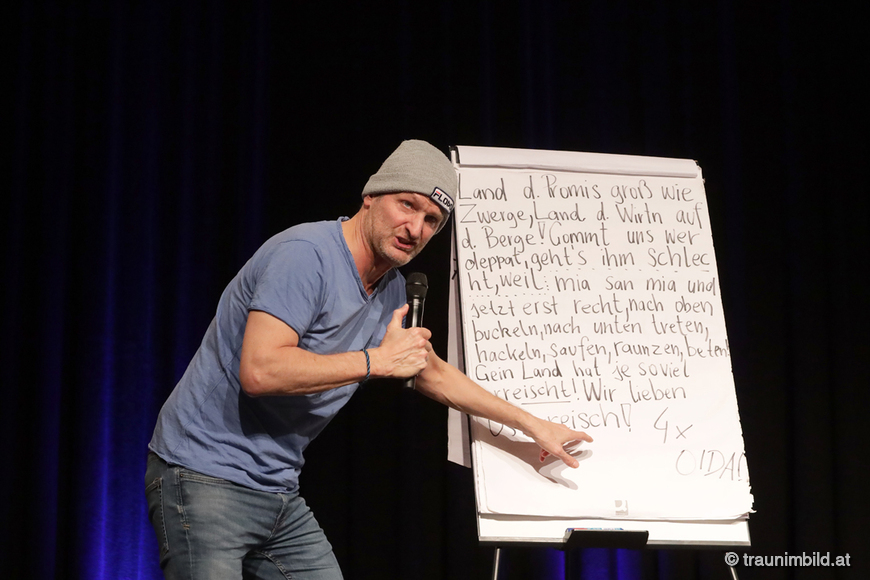 FLOW
Land d. Promis groß wie
Zwerge, Land d. Wirtn auf
d. Berge! Commt uns wer
deppat, geht's ihm Schlec
ht, weil: mia san mia und
jetzt erst recht, nach oben
buckeln, nach unten treten,
hackeln, saufen, raunzen, beten!
Gein Land hat je soviel
erreischt! Wir lieben
reisch!
4x
OIDA!
© traunimbild.at